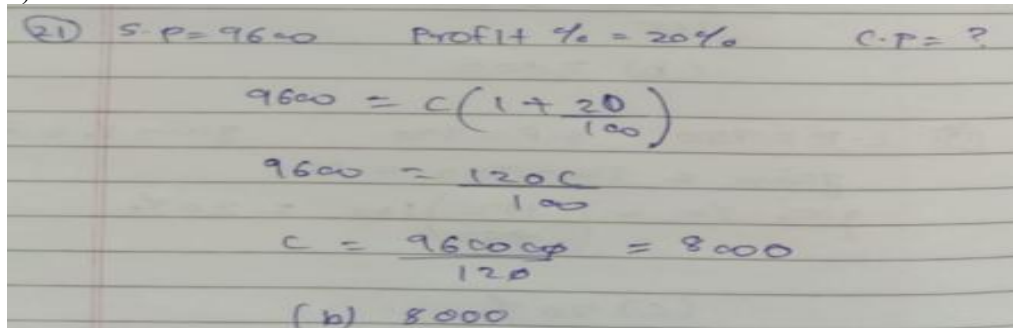 21 S.P = 9600 Profit % = 20% C.P = ?
9600 = C(1 + 20/100)
9600 = 120C/100
C = 960000/120 = 8000
(b) 8000